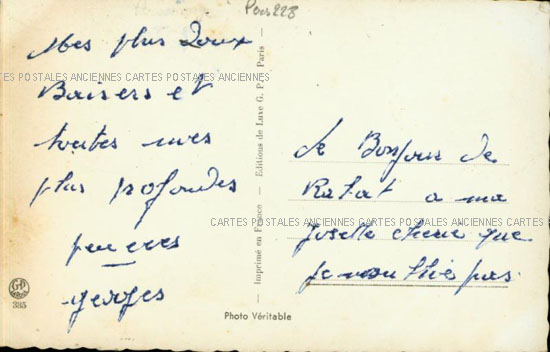 Pers223
Mes plus Doux
CARTES POSTALES ANCIENNES CARTES POSTALES ANCIENNES
Baisers et
toutes mes
plus profondes
pensees
georges
Imprimé en France — Editions de Luxe G. P. Paris —
Le Bonjour de
Rabat a ma
CARTES POSTALES ANCIENNES CARTES POSTALES ANCIENNES
Josette cherie que
Je n'oublie pas
GP
385
Photo Véritable